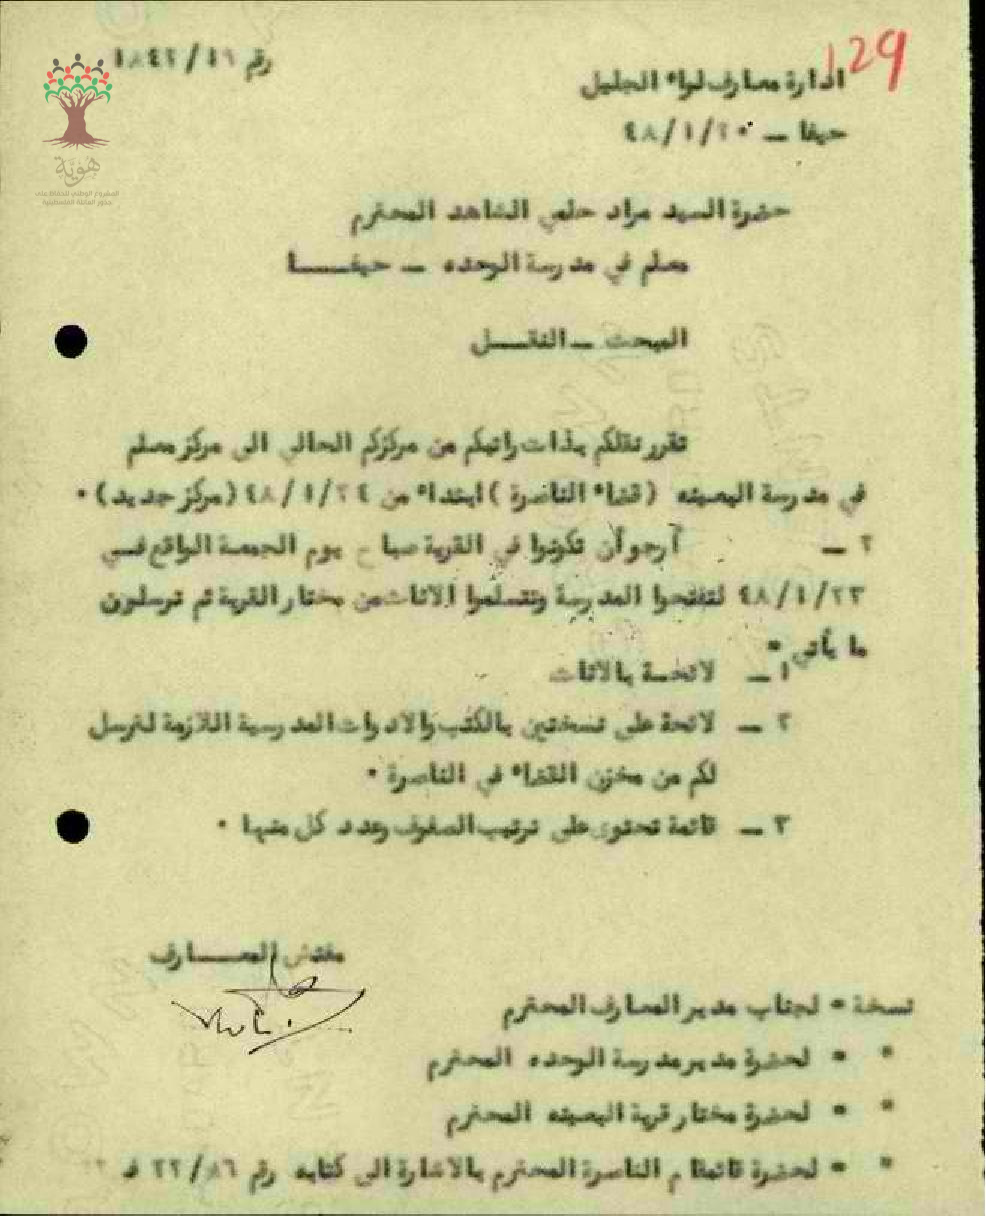 129
رقم ١٨٤٢/١٩
ادارة معارف لواء الجليل
حيفا ــ ٤٨/١/٢٠
هوية
المشروع الوطني للحفاظ على
جذور العائلة الفلسطينية
حضرة السيد مراد حلمي الشاهد المحترم
معلم في مدرسة الوحده ــ حيفــــا
المبحث ــ النقــل
تقرر نقلكم بذات راتبكم من مركزكم الحالي الى مركز معلم
في مدرسة البعينه (قضاء الناصرة) ابتداء من ٤٨/١/٢٤ (مركز جديد) ٠
٢ ــ أرجو أن تكونوا في القرية صباح يوم الجمعة الواقع فــي
٤٨/١/٢٣ لتفتحوا المدرسة وتتسلموا الاثاث من مختار القرية ثم ترسلون
ما يأتي ٠
١ ــ لائحــة بالاثاث
٢ ــ لائحة على نسختين بالكتب والادوات المدرسية اللازمة لنرسل
لكم من مخزن القضاء في الناصرة ٠
٣ ــ قائمة تحتوى على ترتيب الصفوف وعدد كل منها ٠
مفتش المعــــارف
نسخة = لجناب مدير المعارف المحترم
" = لحضرة مدير مدرسة الوحده المحترم
" = لحضرة مختار قرية البعينه المحترم
" = لحضرة قائمقام الناصرة المحترم بالاشارة الى كتابه رقم ٢٢/٨٦